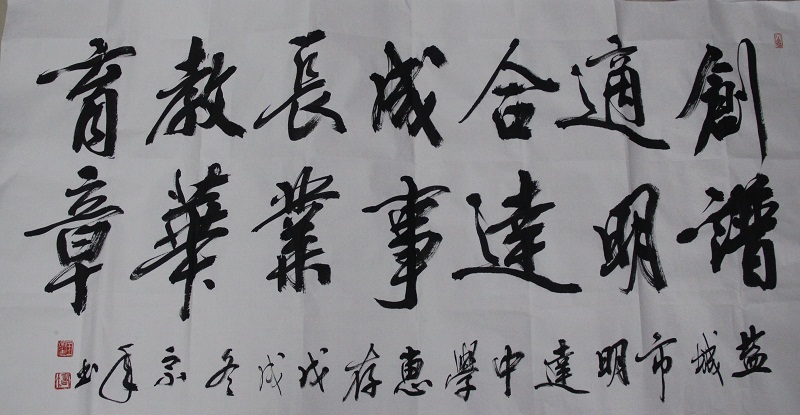 創適合成長教育
譜明達事業華章
盐城市明達中學惠存戊戌冬宗年书